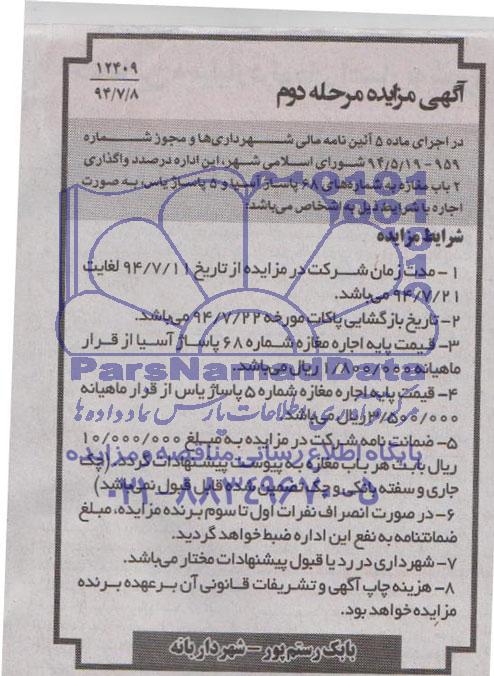 ۱۲۴۰۹
۹۴/۷/۸
آگهی مزایده مرحله دوم
در اجرای ماده ۵ آئین نامه مالی شهرداری‌ها و مجوز شماره
۹۵۹ - ۹۴/۵/۱۹ شورای اسلامی شهر، این اداره درصدد واگذاری
۲ باب مغازه به شماره‌های ۶۸ پاساژ آسیا و ۵ پاساژ یاس، به صورت
اجاره با شرایط ذیل به اشخاص می‌باشد:
شرایط مزایده
۱- مدت زمان شرکت در مزایده از تاریخ ۹۴/۷/۱۱ لغایت
۹۴/۷/۲۱ می‌باشد.
۲- تاریخ بازگشایی پاکات مورخه ۹۴/۷/۲۲ می‌باشد.
۳- قیمت پایه اجاره مغازه شماره ۶۸ پاساژ آسیا از قرار
ماهیانه ۱/۸۰۰/۰۰۰ ریال می‌باشد.
ParsNamadData
۴- قیمت پایه اجاره مغازه شماره ۵ پاساژ یاس از قرار ماهیانه
۳/۵۰۰/۰۰۰ ریال می‌باشد.
۵- ضمانت نامه شرکت در مزایده به مبلغ ۱۰/۰۰۰/۰۰۰
پایگاه اطلاع رسانی مناقصه و مزایده
ریال بابت هر باب مغازه به پیوست پیشنهادات گردد. (چک
جاری و سفته بانکی و چک تضمین شده قابل قبول نمی‌باشد)
۰۲۱-۸۸۳۴۹۶۷۰-۵
۶- در صورت انصراف نفرات اول تا سوم برنده مزایده، مبلغ
ضمانتنامه به نفع این اداره ضبط خواهد گردید.
۷- شهرداری در رد یا قبول پیشنهادات مختار می‌باشد.
۸- هزینه چاپ آگهی و تشریفات قانونی آن بر عهده برنده
مزایده خواهد بود.
بابک رستم پور - شهردار بانه